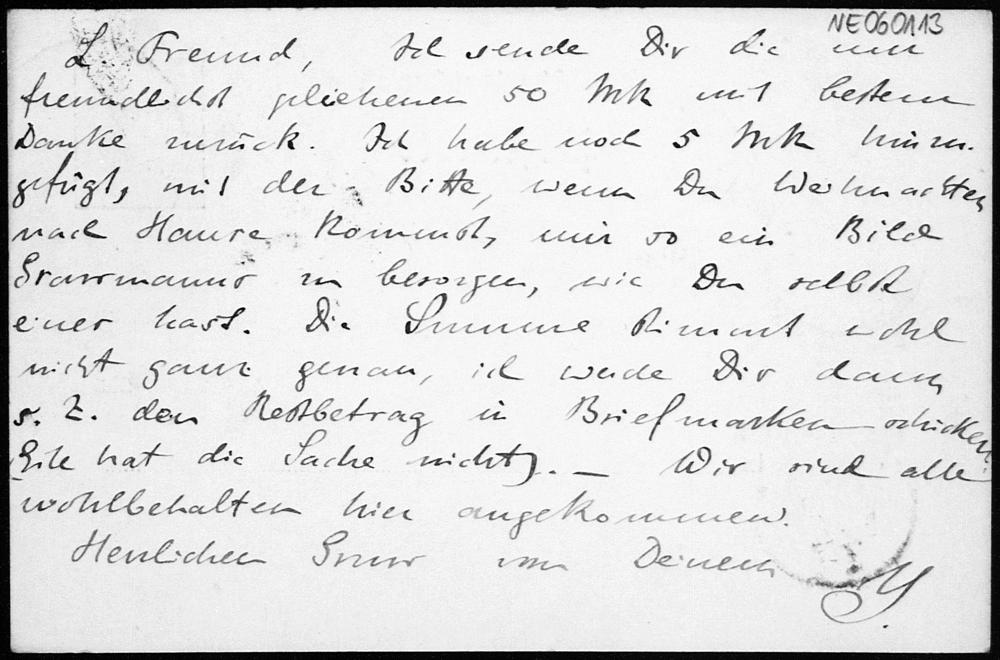 NE060113
L. Freund, Ich sende Dir die mir
freundlichst geliehenen 50 Mk mit bestem
Danke zurück. Ich habe noch 5 Mk hinzu-
gefügt, mit der Bitte, wenn Du Weihnachten
nach Hause kommst, mir so ein Bild
Grassmanns zu besorgen, wie Du selbst
eines hast. Die Summe stimmt wohl
nicht ganz genau, ich werde Dir dann
s. Z. den Restbetrag in Briefmarken schicken.
Eile hat die Sache nicht). — Wir sind alle
wohlbehalten hier angekommen.
Herzlichen Gruss von Deinem